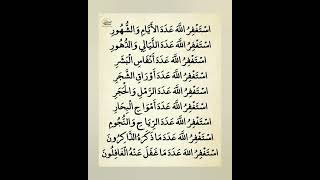 اسْتَغْفِرُ اللَّهَ عَدَدَ الْأَيَّامِ وَالشُّهُورِ
اسْتَغْفِرُ اللَّهَ عَدَدَ اللَّيَالِي وَالدُّهُورِ
اسْتَغْفِرُ اللَّهَ عَدَدَ أَنْفَاسِ الْبَشَرِ
اسْتَغْفِرُ اللَّهَ عَدَدَ أَوْرَاقِ الشَّجَرِ
اسْتَغْفِرُ اللَّهَ عَدَدَ الرَّمْلِ وَالْحَجَرِ
اسْتَغْفِرُ اللَّهَ عَدَدَ أَمْوَاجِ الْبِحَارِ
اسْتَغْفِرُ اللَّهَ عَدَدَ الرِّيَاحِ وَالنُّجُومِ
اسْتَغْفِرُ اللَّهَ عَدَدَ مَا ذَكَرَهُ الذَّاكِرُونَ
اسْتَغْفِرُ اللَّهَ عَدَدَ مَا غَفَلَ عَنْهُ الْغَافِلُونَ